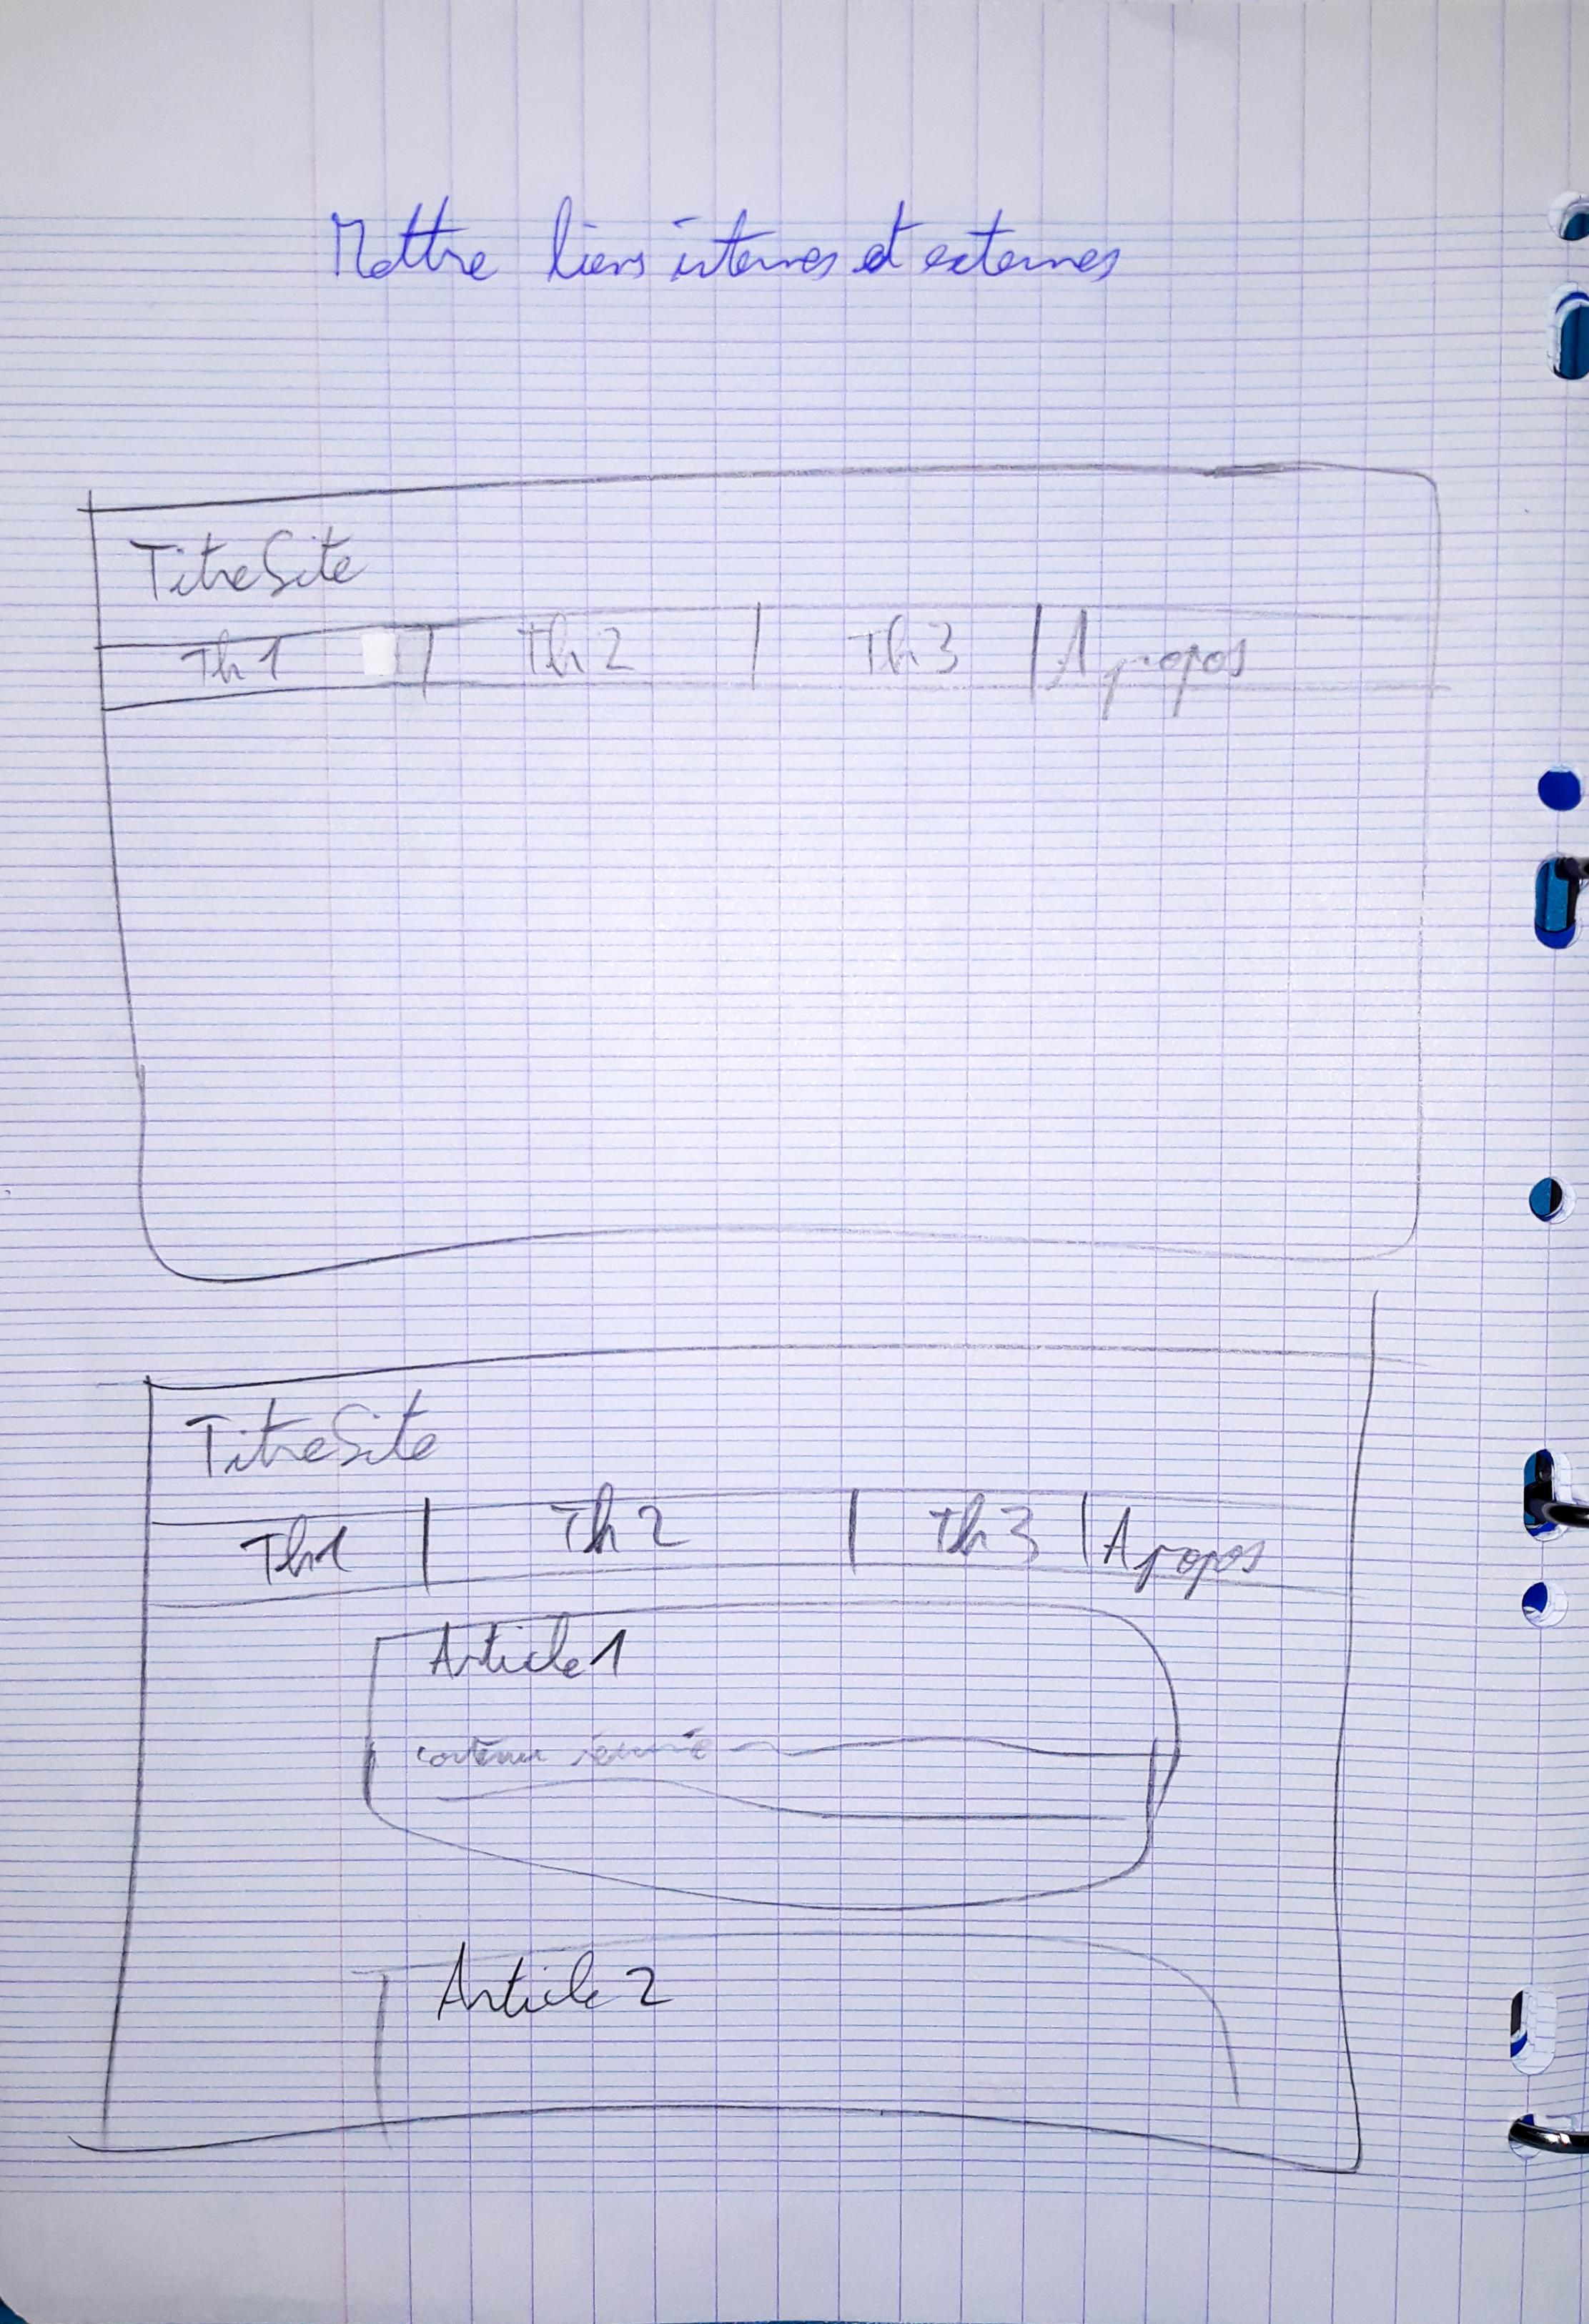 Mettre liens internes et externes
TitreSite
Th1 | Th2 | Th3 | A propos
TitreSite
Th1 | Th2 | Th3 | A propos
Article 1
contenu résumé
Article 2